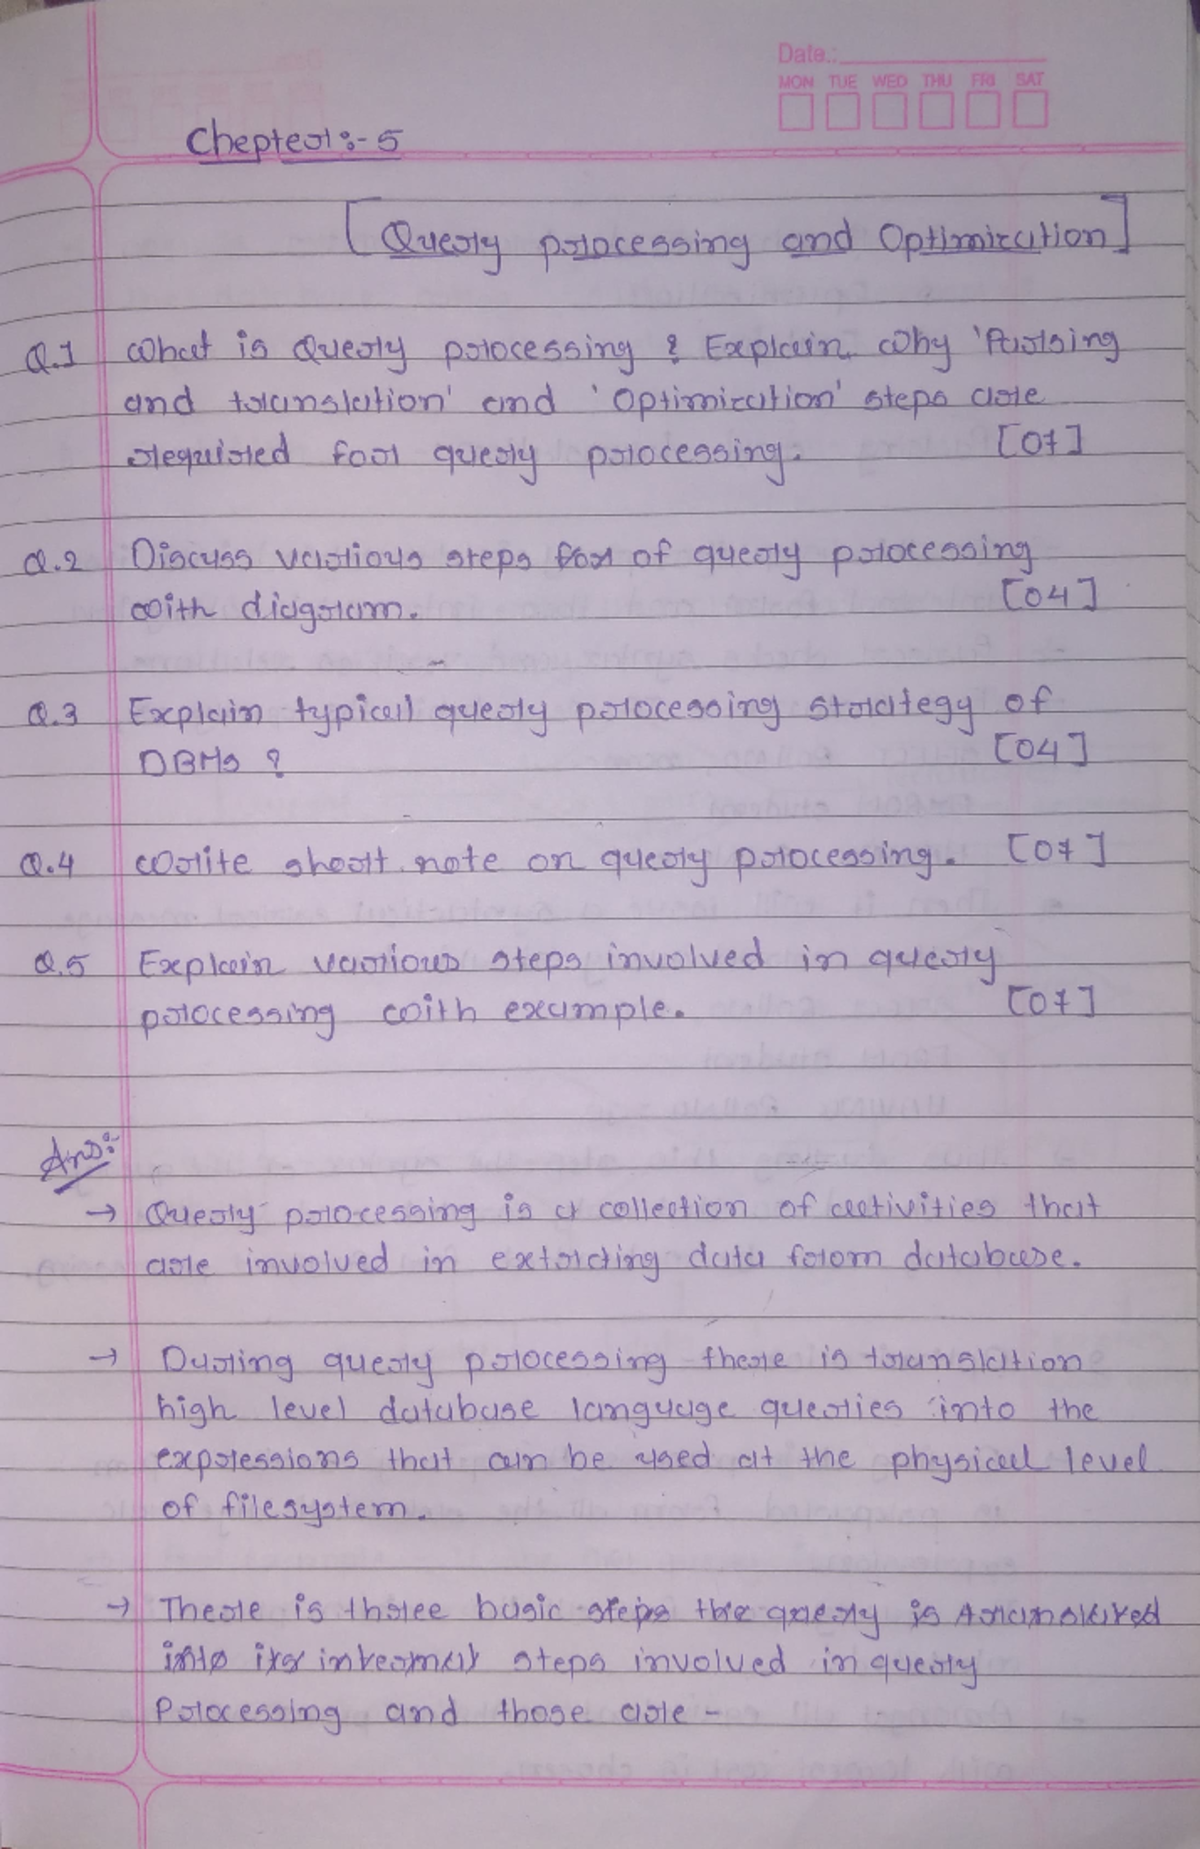 Date.:
MON TUE WED THU FRI SAT
Chepter:- 5
[Query processing and Optimization]
Q.1 What is Query processing ? Explain why 'Parsing
and translation' and 'Optimization' steps are
required for query processing. [07]
Q.2 Discuss various steps for of query processing
with diagram. [04]
Q.3 Explain typical query processing strategy of
DBMS ? [04]
Q.4 Write short note on query processing. [07]
Q.5 Explain various steps involved in query
processing with example. [07]
Ans:-
→ Query processing is a collection of activities that
are involved in extrating data form database.
→ During query processing there is translation
high level database language queries into the
expressions that can be used at the physical level
of filesystem.
→ There is three basic steps the query is translated
into its internal steps involved in query
Processing and those are -